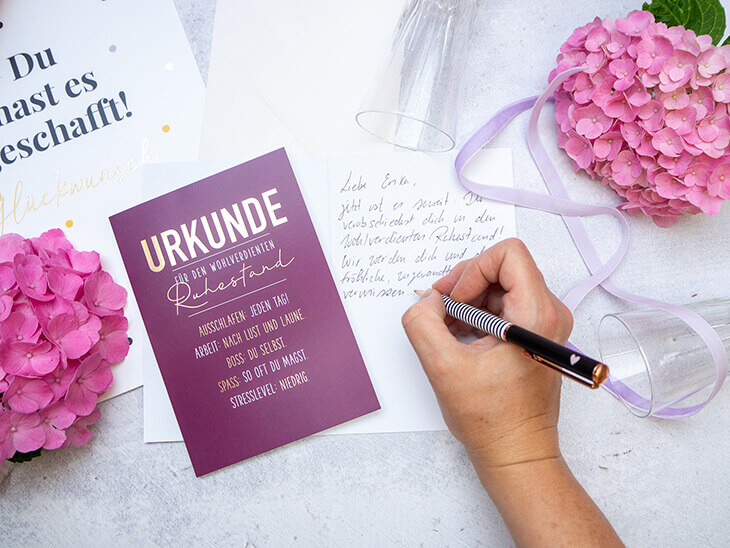 Du
hast es
geschafft!
Glückwunsch
URKUNDE
FÜR DEN WOHLVERDIENTEN
Ruhestand
AUSSCHLAFEN: JEDEN TAG!
ARBEIT: NACH LUST UND LAUNE.
BOSS: DU SELBST.
SPASS: SO OFT DU MAGST.
STRESSLEVEL: NIEDRIG.
Liebe Erika,
jetzt ist es soweit. Du
verabschiedest dich in den
wohlverdienten Ruhestand!
Wir werden dich und deine
fröhliche, zugewandte
vermissen.